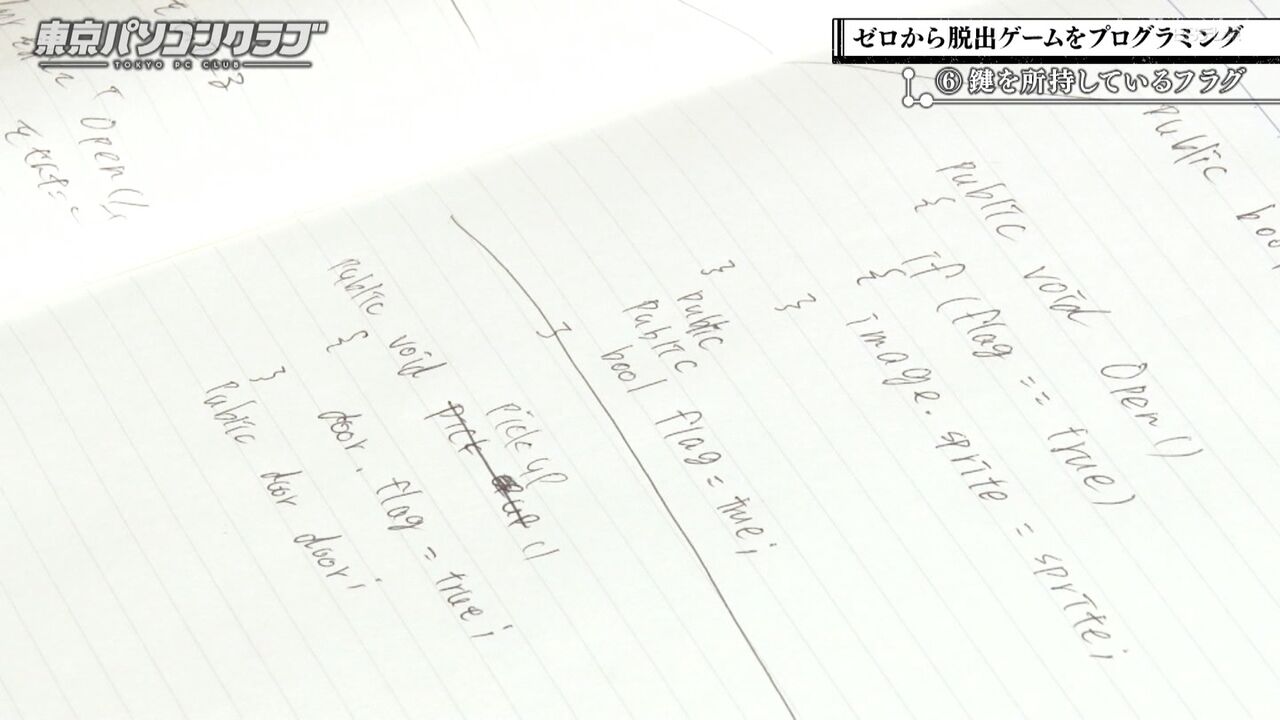 東京パソコンクラブ
TOKYO PC CLUB
ゼロから脱出ゲームをプログラミング
⑥ 鍵を所持しているフラグ
{
Open();
public
public void Open()
{
if (flag == true)
{
image. sprite = sprite;
}
}
public
public
bool flag = true;
}
public void pickup ()
{
door. flag = true;
}
public door door;